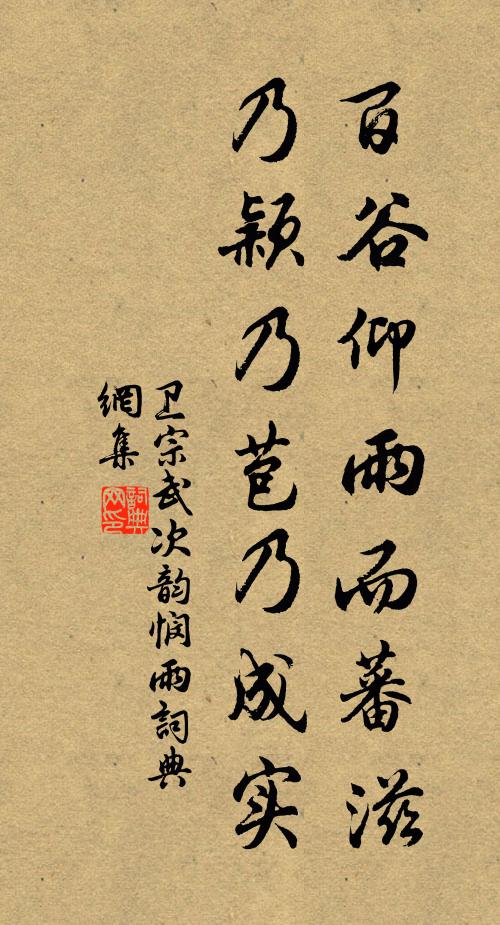 百谷仰雨而蕃滋
乃颖乃苞乃成实
卫宗武次韵悯雨詞典
網集
詞典
网印